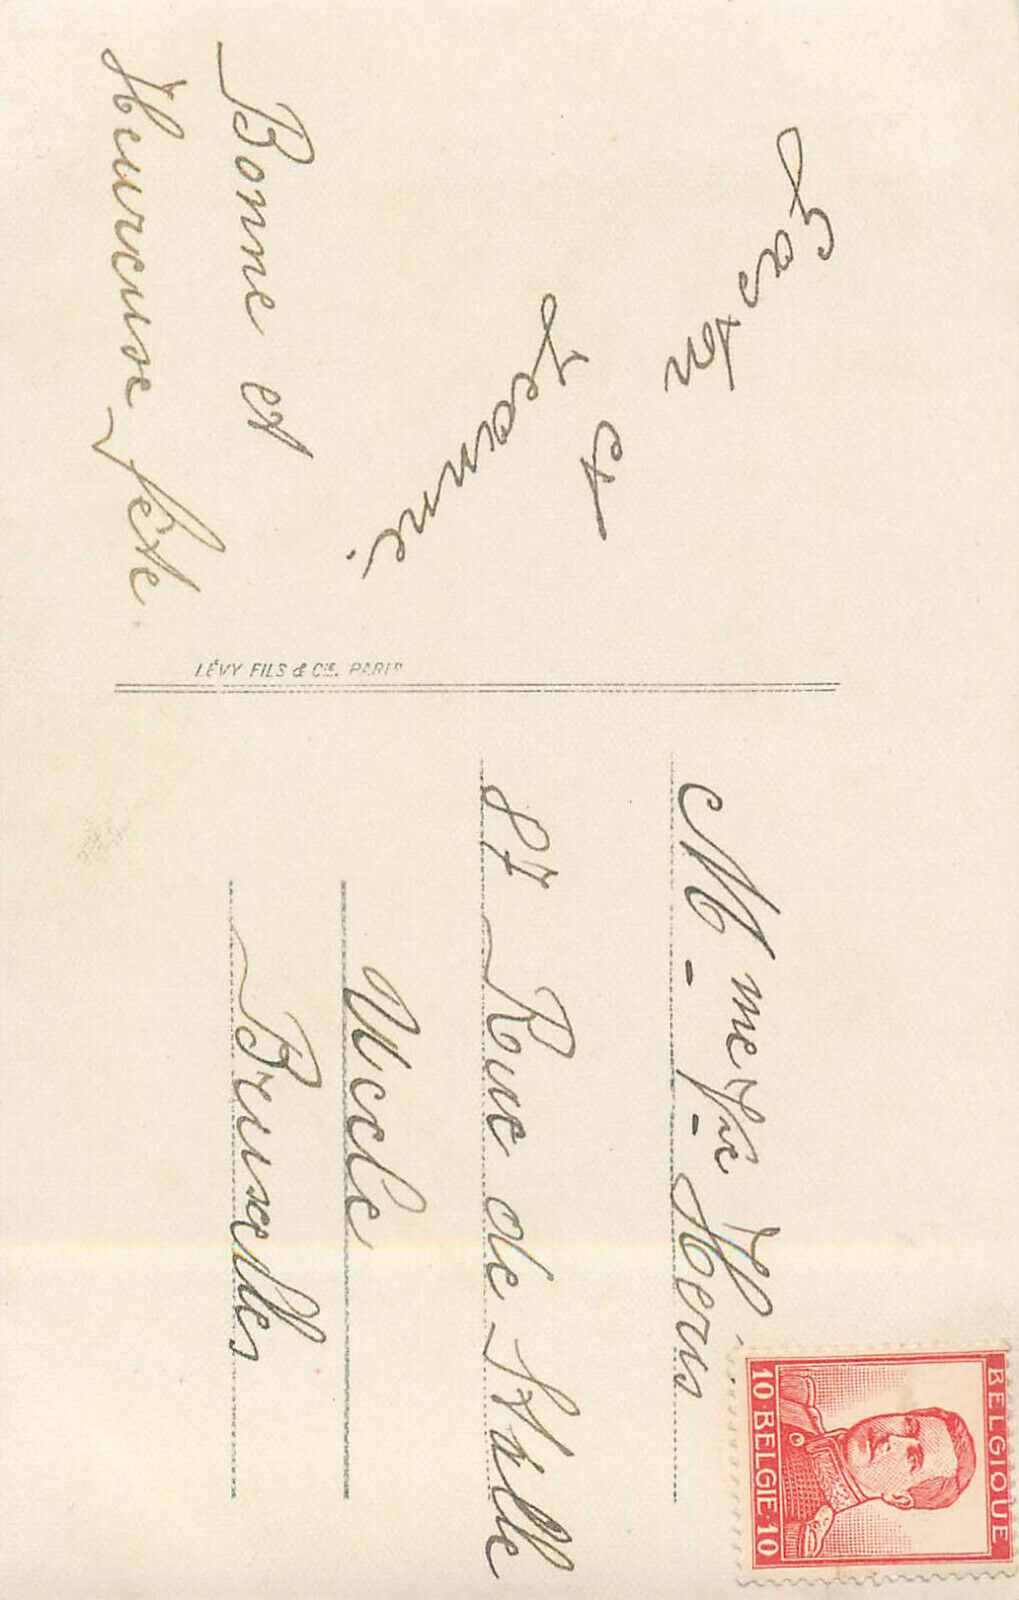 Gaston
et
Jeanne.
Bonne et
Heureuse fête
LÉVY FILS & CIE. PARIS
M-me Vve Heris
87 Rue de Stalle
Uccle
Bruxelles
BELGIQUE
10 BELGIE 10